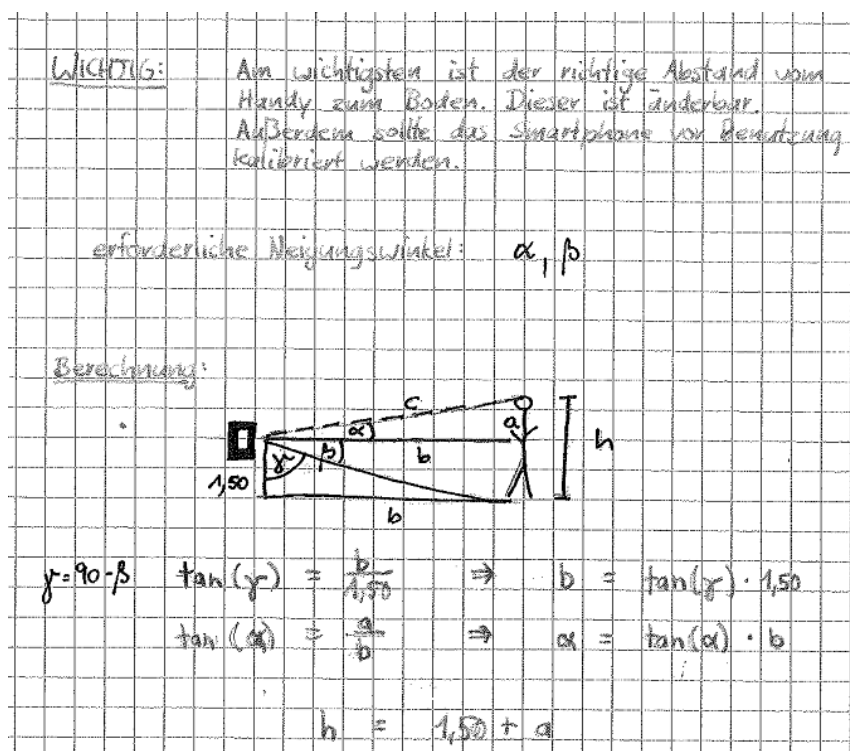 WICHTIG: Am wichtigsten ist der richtige Abstand vom
Handy zum Boden. Dieser ist änderbar.
Außerdem sollte das Smartphone vor Benutzung
kalibriert werden.
erforderliche Neigungswinkel: α, β
Berechnung:
c
α a
h
γ β b
1,50
b
γ=90-β tan(γ) = b/1,50 ⇒ b = tan(γ) · 1,50
tan(α) = a/b ⇒ α = tan(α) · b
h = 1,50 + a